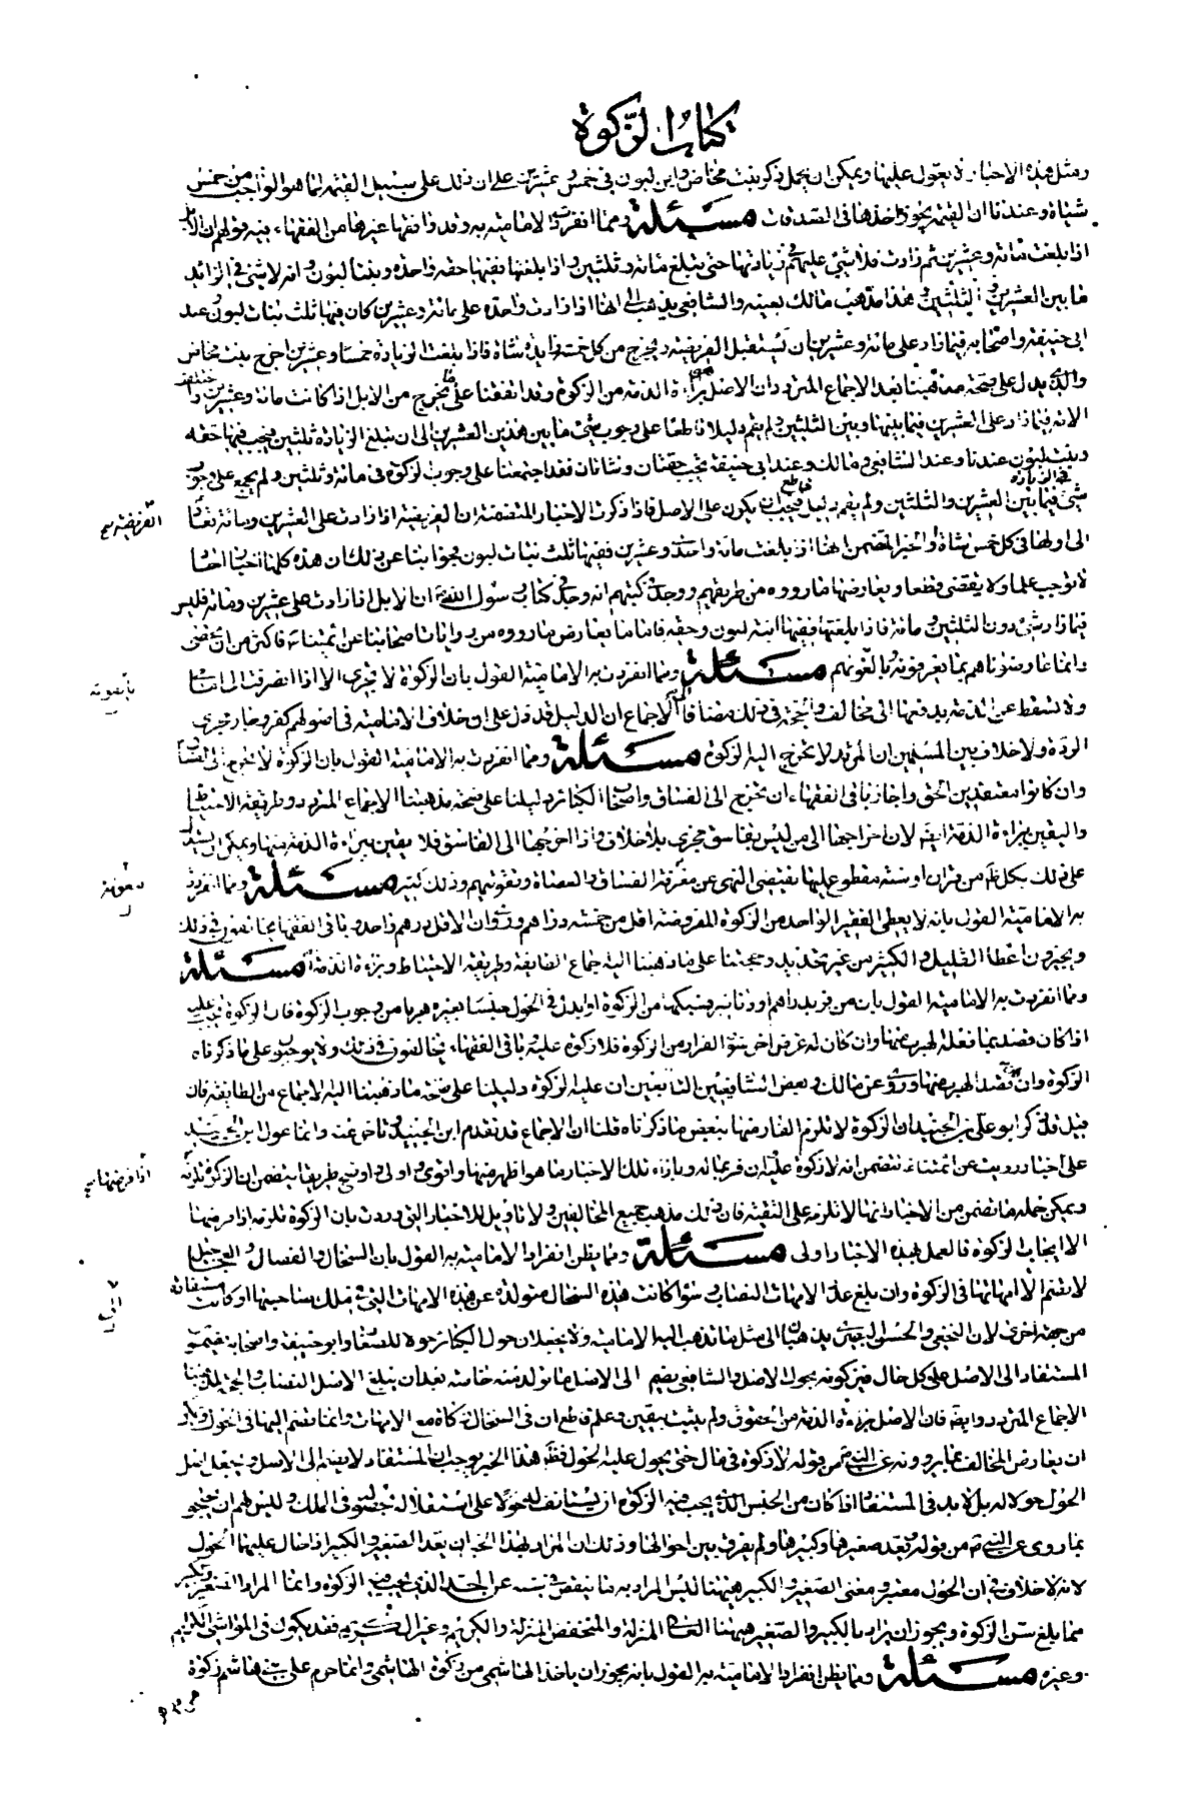 كتاب الزكوة
ومثل هذه الاخبار لا يعول عليها ويمكن ان يحمل ذكر بنت مخاض وابن لبون في خمس وعشرين على ان ذلك على سبيل القيمة لما هو الواجب من خمس
شياه وعندنا ان القيمة يجوز اخذها في الصدقات مسئلة ومما انفردت الامامية به وقد وافقها غيرها من الفقهاء فيه قولهم ان الابل
اذا بلغت مائة وعشرين ثم زادت فلا شئ عليهم في زيادتها حتى يبلغ مائة وثلثين واذا بلغتها ففيها حقة واحدة وبنتا لبون وانه لا شئ في الزائد
ما بين العشرين والثلثين وهذا مذهب مالك بعينه والشافعي يذهب الى انها اذا زادت واحدة على مائة وعشرين كان فيها ثلث بنات لبون وعند
ابي حنيفة واصحابه فيما زاد على مائة وعشرين ان يستقبل الفريضة ويخرج من كل خمس زايدة شاة فاذا بلغت الزيادة خمسا وعشرين اخرج بنت مخاض
والذي يدل على صحة مذهبنا بعد الاجماع المتردد ان الاصل براءة الذمة من الزكوة وقد اتفقنا على ما يخرج من الابل اذا كانت مائة وعشرين واختلف
الامة فيما زاد على العشرين فيما بينها وبين الثلثين ولم يقم دليلا قاطعا على وجوب شئ ما بين هذين العشرين الى ان تبلغ الزيادة ثلثين فيجب فيها حقة
وبنتا لبون عندنا وعند الشافعي ومالك وعند ابي حنيفة يجب حقتان وشاتان فقد اجتمعنا على وجوب الزكوة في مائة وثلثين ولم يجمع على وجوب
شئ في الزيادة فيما بين العشرين والثلثين ولم يقم دليل قاطع فيجب ان يكون على الاصل فاذا ذكرت الاخبار المتضمنة ان الفريضة اذا زادت على العشرين ومائة تعاد
الفريضة
الى اولها في كل خمس شاة او الخبر المتضمن انها اذا بلغت مائة واحدى وعشرين ففيها ثلث بنات لبون فجوابنا عن ذلك ان هذه كلها اخبار احاد
لا توجب علما ولا يقتضي قطعا ويعارضها ما رووه من طريقهم ووجد في كتبهم انه وجد في كتاب رسول الله ان الابل اذا زادت على عشرين ومائة فليس
فيما زاد شئ دون الثلثين ومائة فاذا بلغتها ففيها ابنة لبون وحقة فاما ما يعارض ما رووه من روايات اصحابنا عن ائمتنا فاكثر من ان يحصى
وانما عارضناهم بما يعرفونه ويألفونه مسئلة ومما انفردت به الامامية القول بان الزكوة لا تجزي الا اذا انصرفت الى امامي
ولا تسقط عن الذمة بدفعها الى مخالف والحجة في ذلك مضافا الى الاجماع ان الدليل قد دل على ان خلاف الامامية في اصولهم كفر وجار مجرى
الردة ولا خلاف بين المسلمين ان المرتد لا تخرج اليه الزكوة مسئلة ومما انفردت به الامامية القول بان الزكوة لا تخرج الى الفساق
وان كانوا معتقدين الحق واجاز باقي الفقهاء ان تخرج الى الفساق واصحاب الكبائر دليلنا على صحة مذهبنا الاجماع المتردد وطريقة الاحتياط
واليقين ببراءة الذمة ايضا لان اخراجها الى من ليس بفاسق مجزي بلا خلاف واذا اخرجها الى الفاسق فلا يقين ببراءة الذمة منها ويمكن ان يستدل
على ذلك بكل ظاهر من قران او سنة مقطوع عليها يقتضي النهي عن معونة الفساق والعصاة وتقويتهم وذلك كثير مسئلة ومما انفردت
معونة
به الامامية القول بانه لا يعطى الفقير الواحد من الزكوة المفروضة اقل من خمسة دراهم وروى ان الاقل درهم واحد وباقي الفقهاء يخالفون في ذلك
ويجيزون اعطاء القليل والكثير من غير تحديد وحجتنا على ما ذهبنا اليه اجماع الطايفة وطريقة الاحتياط وبراءة الذمة مسئلة
ومما انفردت به الامامية القول بان من فر بدراهم او دنانير فسبكها من الزكوة او ابدل في الحول جنسا بغيره هربا من وجوب الزكوة فان الزكوة تجب عليه
اذا كان قصد بما فعله الهرب منها وان كان له غرض اخر سوى الفرار من الزكوة فلا زكوة عليه وباقي الفقهاء يخالفون في ذلك ولا يوجبون على ما ذكرناه
الزكوة وان كان قصد الهرب منها وروى عن مالك وبعض التابعين ان عليه الزكوة دليلنا على صحة ما ذهبنا اليه الاجماع من الطايفة فان
قيل قد ذكر ابو علي بن الجنيد ان الزكوة لا تلزم الفار منها ببعض ما ذكرناه قلنا ان الاجماع قد تقدم ابن الجنيد وتأخر عنه وانما عول ابن الجنيد
على اخبار رويت عن ائمتنا تتضمن انه لا زكوة عليه ان فر بماله وبازاء تلك الاخبار ما هو اظهر منها واقوى واولى واوضح طريقا يتضمن ان الزكوة تلزمه
ويمكن حمل ما تضمن من الاخبار انها لا تلزمه على التقية فان ذلك مذهب جميع المخالفين ولا تاويل للاخبار التي وردت بان الزكوة تلزمه اذا فر منها
الا ايجاب الزكوة فالعمل بهذه الاخبار اولى مسئلة ومما يظن انفراد الامامية به القول بان السخال والفصال والعجاجيل
لا تضم الى امهاتها في الزكوة وان بلغ عدد الامهات النصاب سواء كانت هذه السخال متولدة عن هذه الامهات التي في ملك صاحبها او كانت مستفادة
من جهة اخرى لان النخعي والحسن البصري يذهبان الى مثل ما تذهب اليه الامامية ولا يجعلان حول الكبار حولا للصغار وابو حنيفة واصحابه يضمون
المستفاد الى الاصل على كل حال فيزكونه بحول الاصل والشافعي يضم الى الاصل ما تولد منه خاصة بعد ان يبلغ الاصل النصاب والحجة لمذهبنا
الاجماع المتردد وايضا فان الاصل براءة الذمة من الحقوق ولم يثبت بيقين وعلم قاطع ان في السخال زكاة مع الامهات وانما تضم اليها في الحول ويجوز
ان يعارض المخالف بما يروونه عن النبي من قوله لا زكوة في مال حتى يحول عليه الحول فظاهر هذا الخبر يوجب ان المستفاد لا يضم الى الاصل ويجعل اصل
الحول حولا له بل لا بد في المستفاد اذا كان من الجنس الذي يجب فيه الزكوة ان يستانف له حولا على استقلاله بحصوله في الملك وليس لهم ان يحتجوا
بما روى عن النبي من قوله تعد صغيرها وكبيرها ولم يفرق بين احوالها وذلك ان المراد بهذا الخبر ان يعد الصغير والكبير اذا حال عليهما الحول
لانه لا خلاف في ان الحول معتبر ومعنى الصغير والكبير هيهنا ليس المراد به ما ينقص في سنه عن الحد الذي يجب فيه الزكوة وانما المراد الصغير والكبير
مما بلغ سن الزكوة ويجوز ان يراد بالكبير والصغير هيهنا العالي المنزلة والمنخفض المنزلة والكريم وغير الكريم فقد يكون في المواشي الكريم
وغيره مسئلة ومما يظن انفراد الامامية به القول بانه يجوز ان ياخذ الهاشمي من زكوة الهاشمي وانما حرم على بني هاشم زكوة